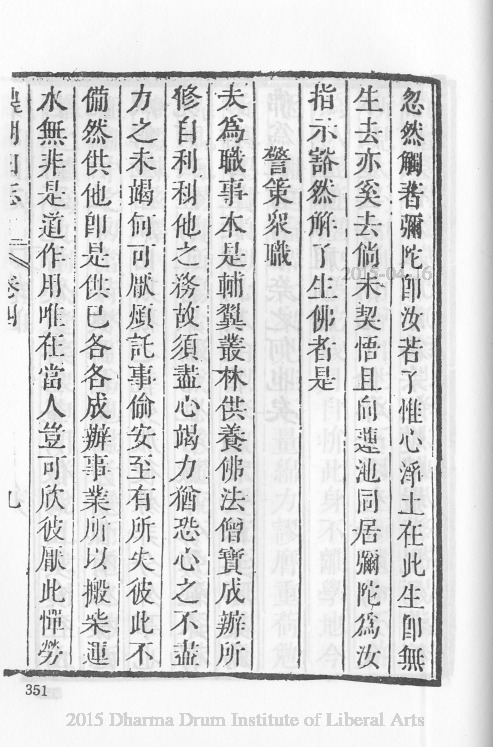 忽然觸著彌陀卽汝若了惟心淨土在此生卽無
生去亦奚去倘未契悟且向蓮池同居彌陀爲汝
指示豁然解了生佛者是
警策眾職
夫爲職事本是輔翼叢林供養佛法僧寶成辦所
修自利利他之務故須盡心竭力猶恐心之不盡
力之未竭何可厭煩託事偷安至有所失彼此不
備然供他卽是供已各各成辦事業所以搬柴運
水無非是道作用唯在當人豈可欣彼厭此憚勞
卷四
九
351
2015-04-16
2015 Dharma Drum Institute of Liberal Arts